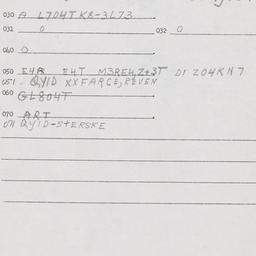 030 A L704T KR-3L73
031 0 032 0
040 0
050 E4R E4T M3RE4, Z+3T D1 Z04KN7
051 QYID XXFARCE, REVEN
060 GL804T
070 ART
071 QYID-STERSKE